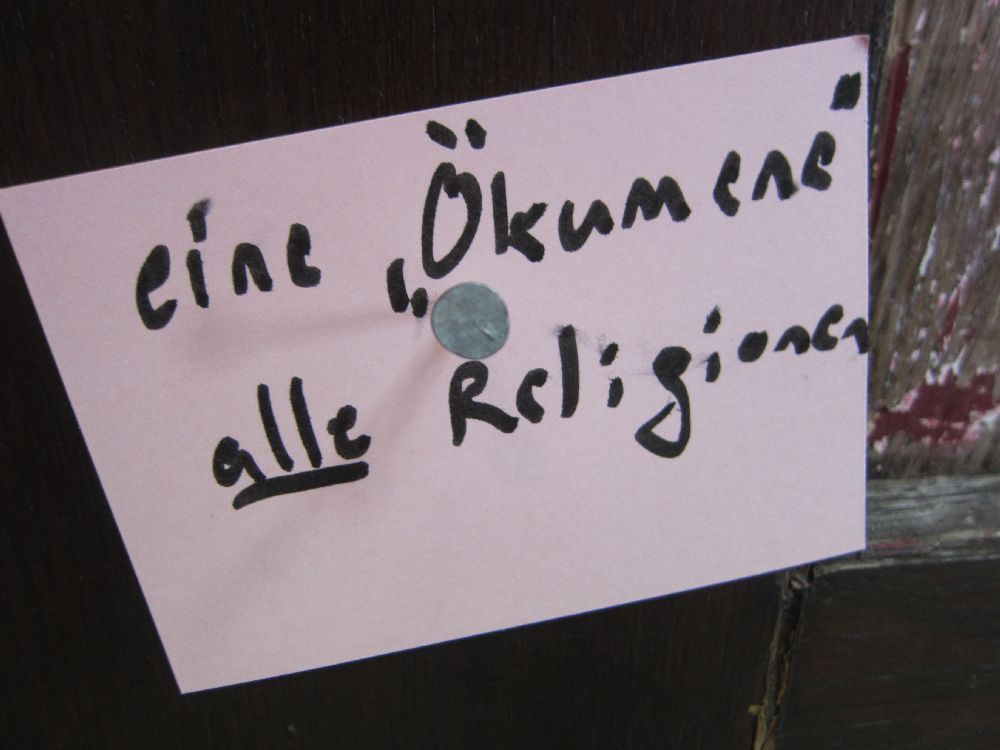 eine „Ökumene"
alle Religionen